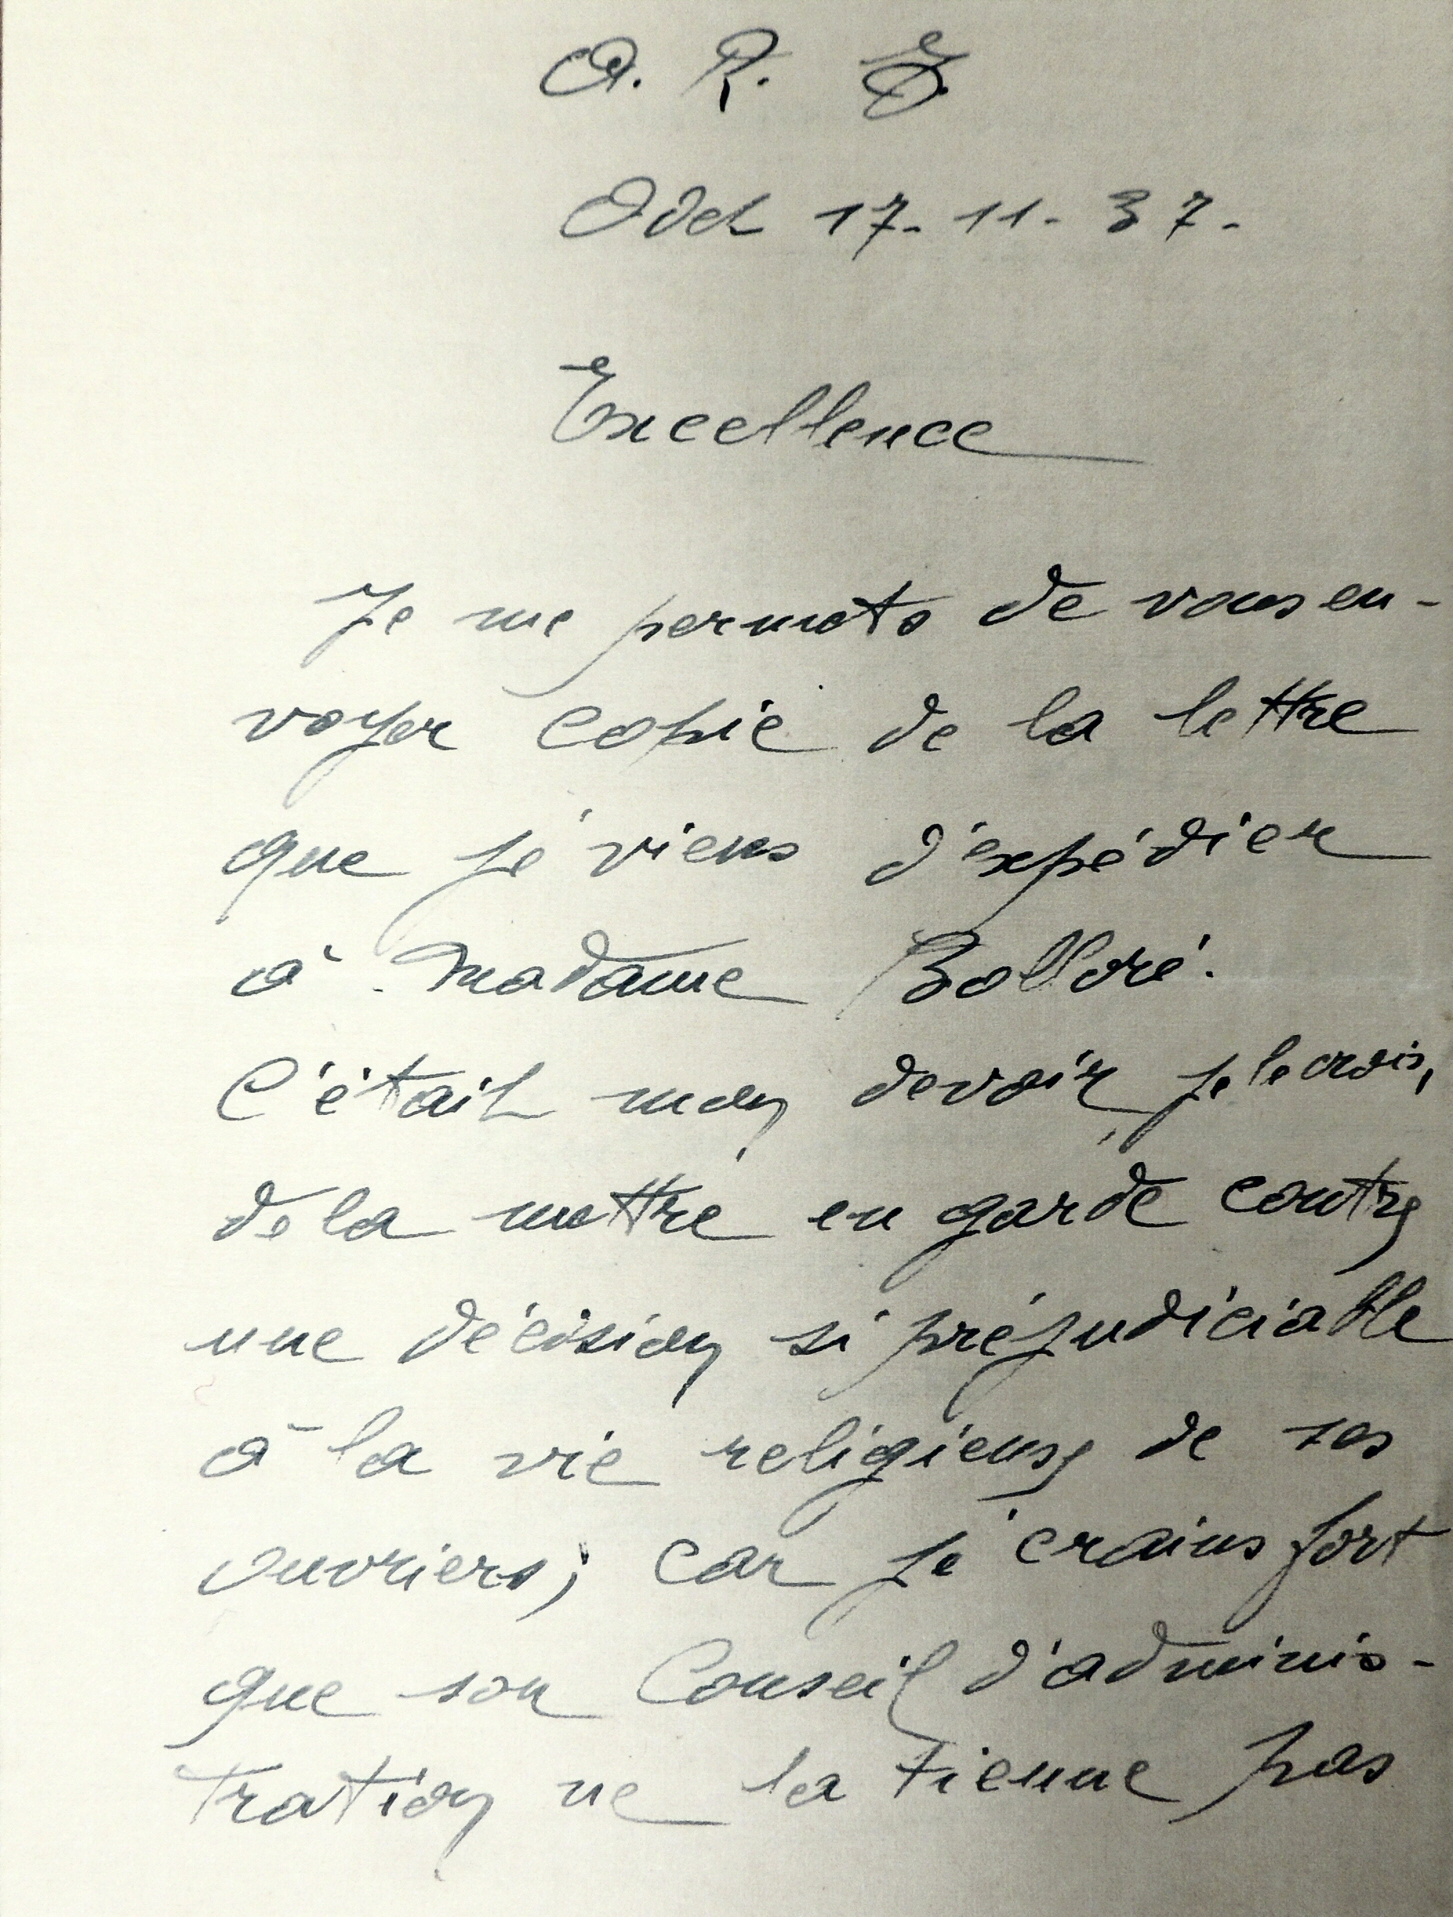 A. R. J.
Odet 17-11-37.
Excellence
Je me permets de vous en-
voyer copie de la lettre
que je viens d'expédier
à Madame Bolloré.
C'était mon devoir je le crois,
de la mettre en garde contre
une décision si préjudiciable
à la vie religieuse de ses
ouvriers; car je crains fort
que son Conseil d'adminis-
tration ne la tienne pas